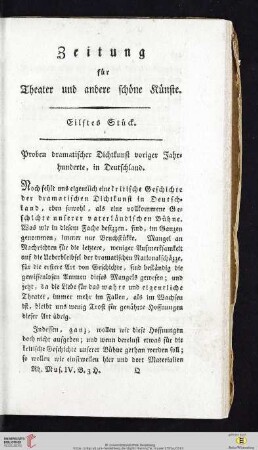 Zeitung
für
Theater und andere schöne Künste.
Eilftes Stück.
Proben dramatischer Dichtkunst voriger Jahr-
hunderte, in Deutschland.
Noch fehlt uns eigentlich eine kritische Geschichte
der dramatischen Dichtkunst in Deutsch-
land, eben sowohl, als eine vollkommene Ge-
schichte unserer vaterländischen Bühne.
Was wir in diesem Fache besitzen, sind, im Ganzen
genommen, immer nur Bruchstücke. Mangel an
Nachrichten für die letztere, weniger Aufmerksamkeit
auf die Ueberbleibsel der dramatischen Nationalschätze,
für die erstere Art von Geschichte, sind beständig die
gewissenlosen Ammen dieses Mangels gewesen; und
jetzt, da die Liebe für das wahre und eigentliche
Theater, immer mehr im Fallen, als im Wachsen
ist, bleibt uns wenig Trost für genährte Hoffnungen
dieser Art übrig.
Indessen, ganz, wollen wir diese Hoffnungen
doch nicht aufgeben; und wenn dereinst etwas für die
kritische Geschichte unserer Bühne gethan werden soll;
so wollen wir einstweilen hier und dort Materialien
Rh. Mus. IV. B. 3 H. Q